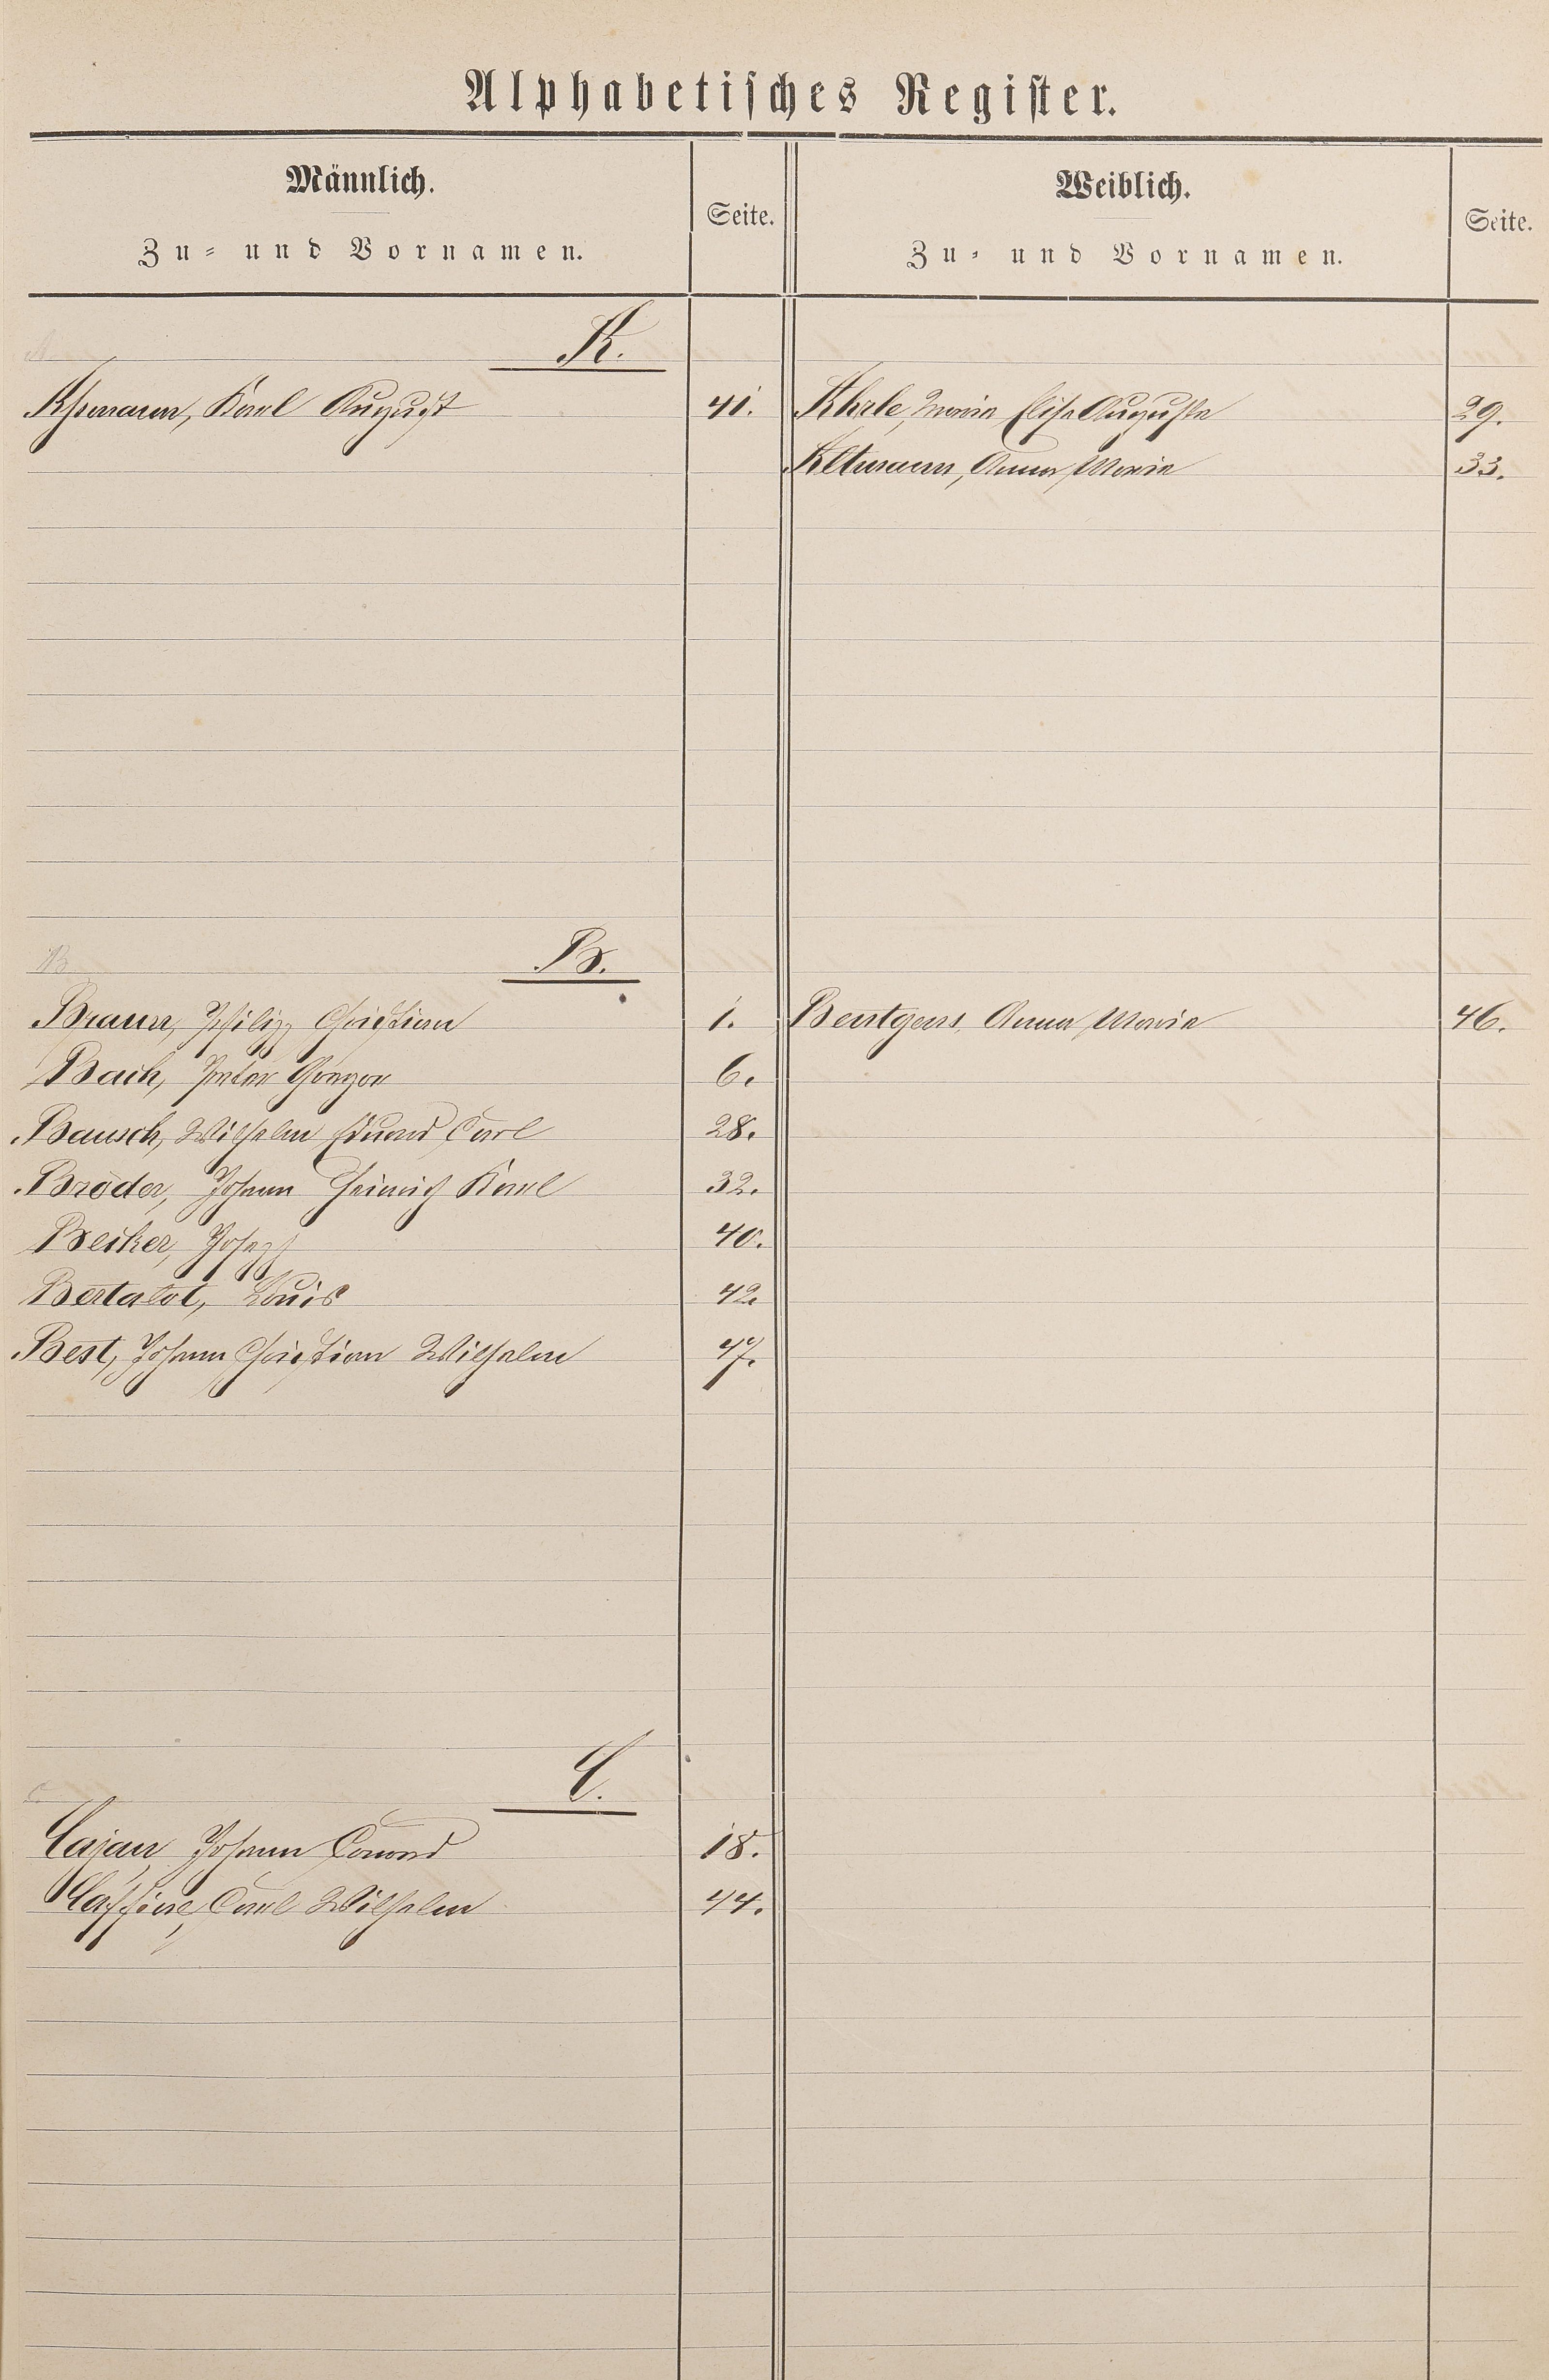 Alphabetisches Register.
Männlich.
Zu- und Vornamen.
Seite.
Weiblich.
Zu- und Vornamen.
Seite.
A.
Aßmann, Karl August 41.
Ahrle, Maria Elise Auguste 29.
Altmann, Anna Maria 33.
B.
Braun, Philipp Christian 1.
Bentgens, Anna Maria 46.
Bach, Peter Gregor 6.
Bausch, Wilhelm Eduard Carl 28.
Bröder, Johann Heinrich Karl 32.
Becker, Joseph 40.
Bertalot, Louis 42.
Best, Johann Christian Wilhelm 47.
C.
Cajan, Johann Conrad 18.
Carl Wilhelm 44.